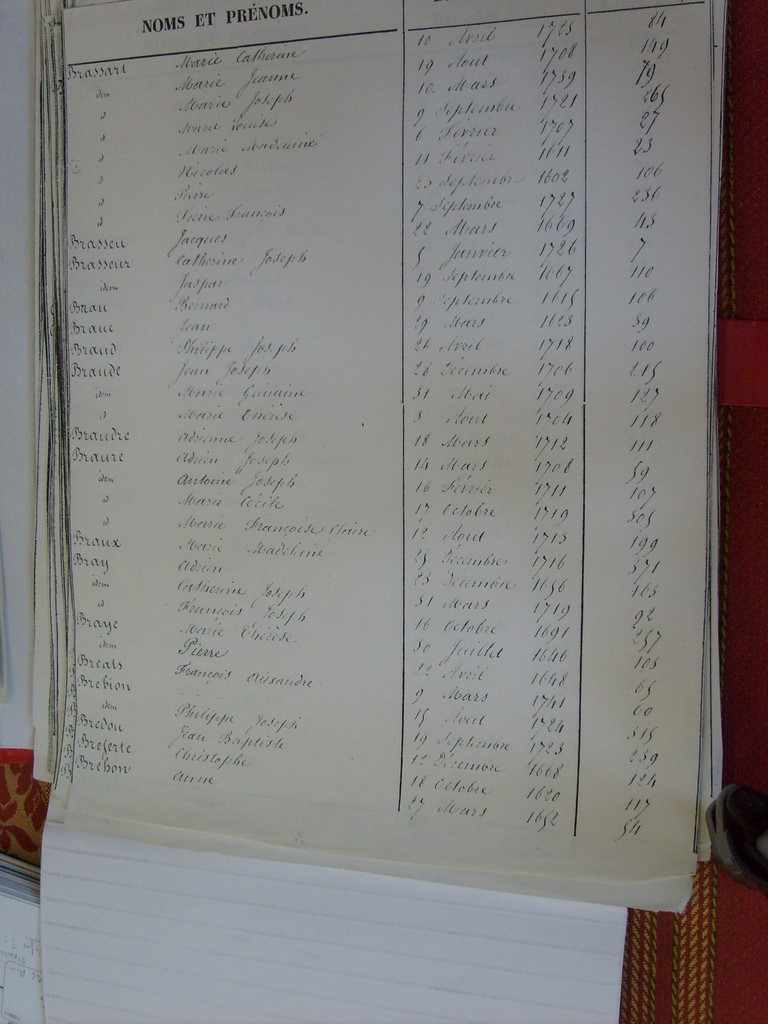 NOMS ET PRÉNOMS.
Brassart Marie Catherine 10 Avril 1725 84
idem Marie Jeanne 19 Aout 1708 149
d Marie Joseph 10 Mars 1739 79
d Marie Louise 9 Septembre 1721 265
d Marie Madeleine 6 Février 1707 27
d Nicolas 11 Février 1611 23
d Pierre 23 Septembre 1602 106
d Pierre François 7 Septembre 1727 236
Brasseu Jacques 22 Mars 1669 43
Brasseur Catherine Joseph 5 Janvier 1726 7
idem Jaspar 19 Septembre 1667 110
Brau Bernard 9 Septembre 1615 106
Brauc Jean 29 Mars 1623 39
Braud Philippe Joseph 26 Avril 1718 100
Braude Jean Joseph 28 Décembre 1706 215
idem Marie Guilaine 31 Mai 1709 127
d Marie Thérèse 8 Aout 1704 118
Braudre Adrienne Joseph 18 Mars 1712 111
Braure Adrien Joseph 14 Mars 1708 59
idem Antoine Joseph 16 Février 1711 107
d Marie Cécile 17 Octobre 1719 305
d Marie Françoise Claire 12 Aout 1713 199
Braux Marie Madeleine 25 Décembre 1716 371
Bray Adrien 23 Décembre 1656 163
idem Catherine Joseph 31 Mars 1719 92
d François Joseph 16 Octobre 1691 257
Braye Marie Thérèse 30 Juillet 1646 103
idem Pierre 22 Avril 1648 65
Breats François Alexandre 9 Mars 1741 60
Brebion 15 Aout 1724 315
idem Philippe Joseph 19 Septembre 1723 239
Bredou Jean Baptiste 12 Décembre 1668 124
Breferte Christophe 18 Octobre 1620 117
Brehon Anne 27 Mars 1652 54